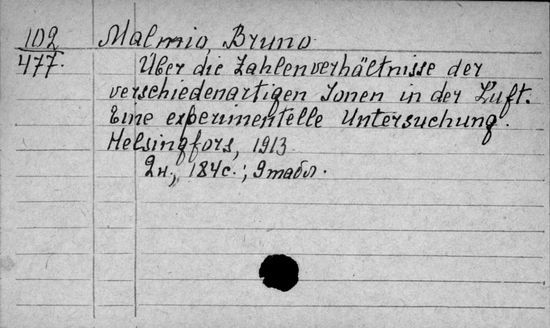 102 Malmio, Bruno
477. Über die Zahlenverhältnisse der
verschiedenartigen Ionen in der Luft.
Eine experimentelle Untersuchung.
Helsingfors, 1913
2н., 184с.; 9табл.